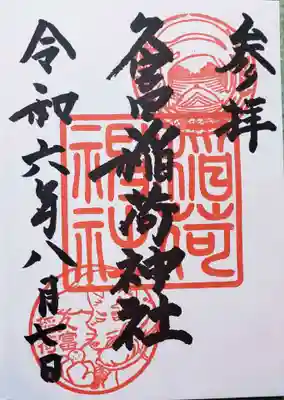 参拝
久富稲荷神社
令和六年八月七日
稲荷
神社